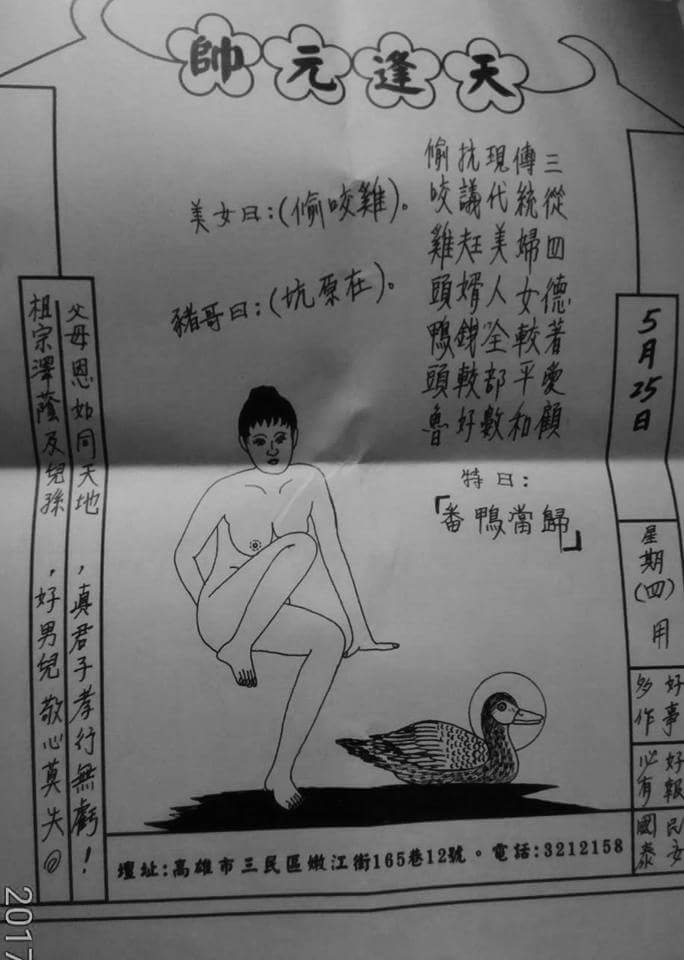 天逢元帥
三從四德著愛顧
傳統婦女較平和
現代美人全部數
抗議赶婿錢較好
偷咬雞頭鴨頭魯
美女曰：(偷咬雞)。
豬哥曰：(坑原在)。
特曰：
「番鴨當歸」
5月25日
星期(四)用
好事多作
好報必有
民安國泰
父母恩如同天地，真君子孝行無虧！
祖宗澤蔭及兒孫，好男兒敬心莫失◎
壇址:高雄市三民區嫩江街165巷12號。電話:3212158
2017